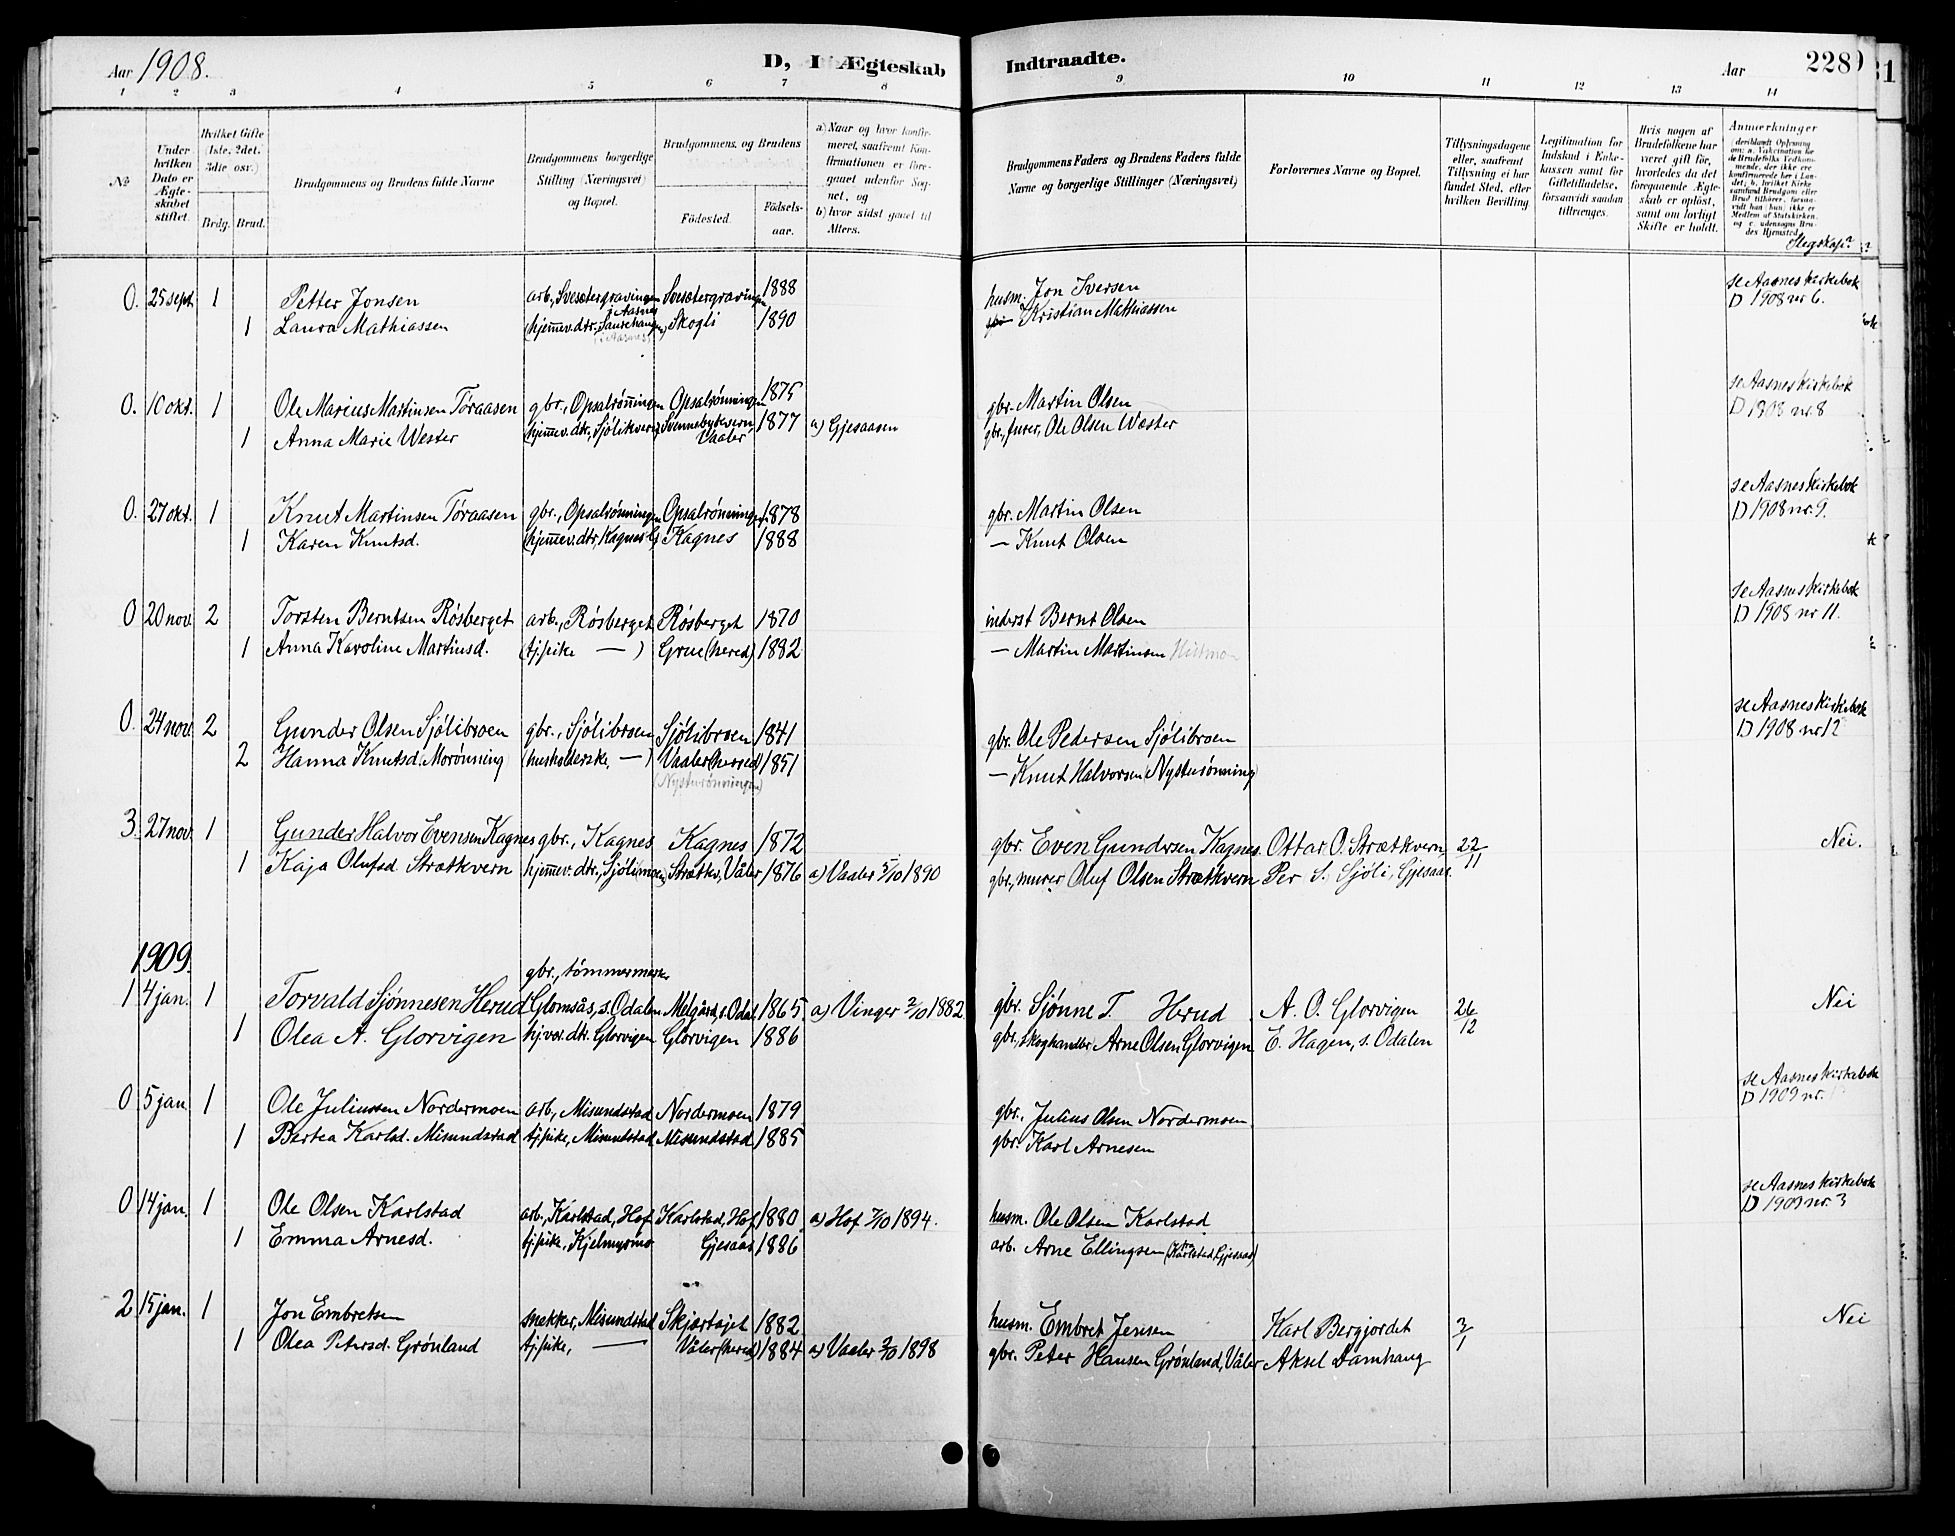 Aar 1908. D, I Ægteskab Indtraadte. Aar 228
1 2 3 4 5 6 7 8 9 10 11 12 13 14
No.
Under hvilken Dato er Ægteskabet stiftet.
Hvilket Gifte (1ste, 2det, 3die osv.)
Brdg. Brud.
Brudgommens og Brudens fulde Navne
Brudgommens borgerlige Stilling (Næringsvei) og Bopæl.
Brudgommens og Brudens
Fødested. Fødselsaar.
a) Naar og hvor konfirmeret, saafremt Konfirmationen er foregaaet udenfor Sognet, og
b) hvor sidst gaaet til Alters.
Brudgommens Faders og Brudens Faders fulde Navne og borgerlige Stillinger (Næringsvei)
Forlovernes Navne og Bopæl.
Tillysningsdagene eller, saafremt Tillysning ei har fundet Sted, efter hvilken Bevilling
Legitimation for Indskud i Enkekassen samt for Giftetilladelse, forsaavidt saadan tiltrænges.
Hvis nogen af Brudefolkene har været gift før, hvorledes da det foregaaende Ægteskab er opløst, samt om lovligt Skifte er holdt.
Anmerkninger
Slegskap?
0. 25 sept. 1 Petter Jonsen arb., Svesætergravingen Svesætergravingen 1888 husm. Jon Iversen se Aasnes kirkebok
i Aasnes D 1908 nr 6.
1 Laura Mathiassen (hjemmev. dtr. Skogli 1890 Kristian Mathiassen
0. 10 okt. 1 Ole Marius Martinsen Töraasen gbr., Opsalrönningen Opsalrönningen 1875 gbr. Martin Olsen se Aasnes kirkebok
D 1908 nr 8
1 Anna Marie Wester hjemmev. dtr., Sjölikvern Svennebykvern Vaaler 1877 a) Gjesaasen gbr., furer, Ole Olsen Wæster
0. 27 okt. 1 Knut Martinsen Töraasen gbr., Opsalrönningen Opsalrönningen 1878 gbr. Martin Olsen se Aasnes kirkebok
D 1908 nr. 9.
1 Karen Knutsd. (hjemmev. dtr, Kagnes Kagnes 1888 — Knut Olsen
0 20 nov. 2 Torsten Berntsen Rösberget arb., Rösberget Rösberget 1870 inderst Bernt Olsen se Aasnes kirkebok
D 1908 nr 11.
1 Anna Karoline Martinsd. (tj.pike —) Grue (hered) 1882 — Martin Martinsen
0 24 nov. 2 Gunder Olsen Sjölibroen gbr., Sjölibroen Sjölibroen 1841 gbr. Ole Pedersen Sjölibroen se Aasnes kirkebok
D 1908 nr 12
2 Hanna Knutsd. (Morönning) (husholderske, —) Vaaler (herred) 1851 — Knut Halvorsen (Nysturönning)
(Nysturönningen)
3. 27 nov. 1 Gunder Halvor Evensen Kagnes gbr., Kagnes Kagnes 1872 gbr. Even Gundersen Kagnes Ottar O. Strætkvern, 22/11 Nei.
1 Kaja Olufsd. Strætkvern hjemmev. dtr., Sjölimoen Strætkv., Våler 1876 a) Vaaler 5/10 1890 gbr., murer Oluf Olsen Strætkvern Per S. Sjöli, Gjesaas.
1909.
gbr., tömmermerker
1 4 jan. 1 Torvald Sjönnesen Herud Glomsås, s. Odalen Melgård, s. Odal. 1865. a) Vinger 2/10 1882 gbr. Sjönne T. Herud A. O. Glorvigen 26/12 Nei
1 Olea A. Glorvigen hj.vær. dtr. Glorvigen Glorvigen 1886 gbr., skoghandler Arne Olsen Glorvigen E. Hagen, s. Odalen
0 5 jan. 1 Ole Juliussen Nordermoen arb., Misundstad Nordermoen 1879 gbr., Julius Olsen Nordermoen se Aasnes kirkebok
D 1909 nr.
1 Bertea Karlsd. Misundstad tj.pike, Misundstad Misundstad 1885 gbr. Karl Arnesen
0 14 jan. 1 Ole Olsen Karlstad arb., Karlstad, Hof Karlstad, Hof 1880 a) Hof 7/10 1894. husm. Ole Olsen Karlstad se Aasnes kirkebok
D 1909 nr. 3
1 Emma Arnesd. tj.pike, Kjelmyrmo Gjesaas 1886 arb. Arne Ellingsen (Karlstad, Gjesaas)
2 15 jan. 1 Jon Embretsen snekker, Misundstad Skjærtøjet 1882 husm. Embret Jensen Karl Bergjordet 3/1 Nei
1 Olea Petersd. Grönland tj.pike, — Våler (hered) 1884 a) Vaaler 2/10 1898 gbr. Peter Hansen Grönland, Våler Aksel Damhaug